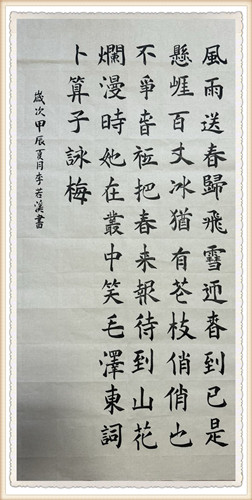 風雨送春歸飛䨮迎春到已是
懸崕百丈冰猶有花枝俏俏也
不爭春衹把春来報待到山花
爛漫時她在叢中笑毛澤東詞
卜算子詠梅
歲次甲辰夏月李若書